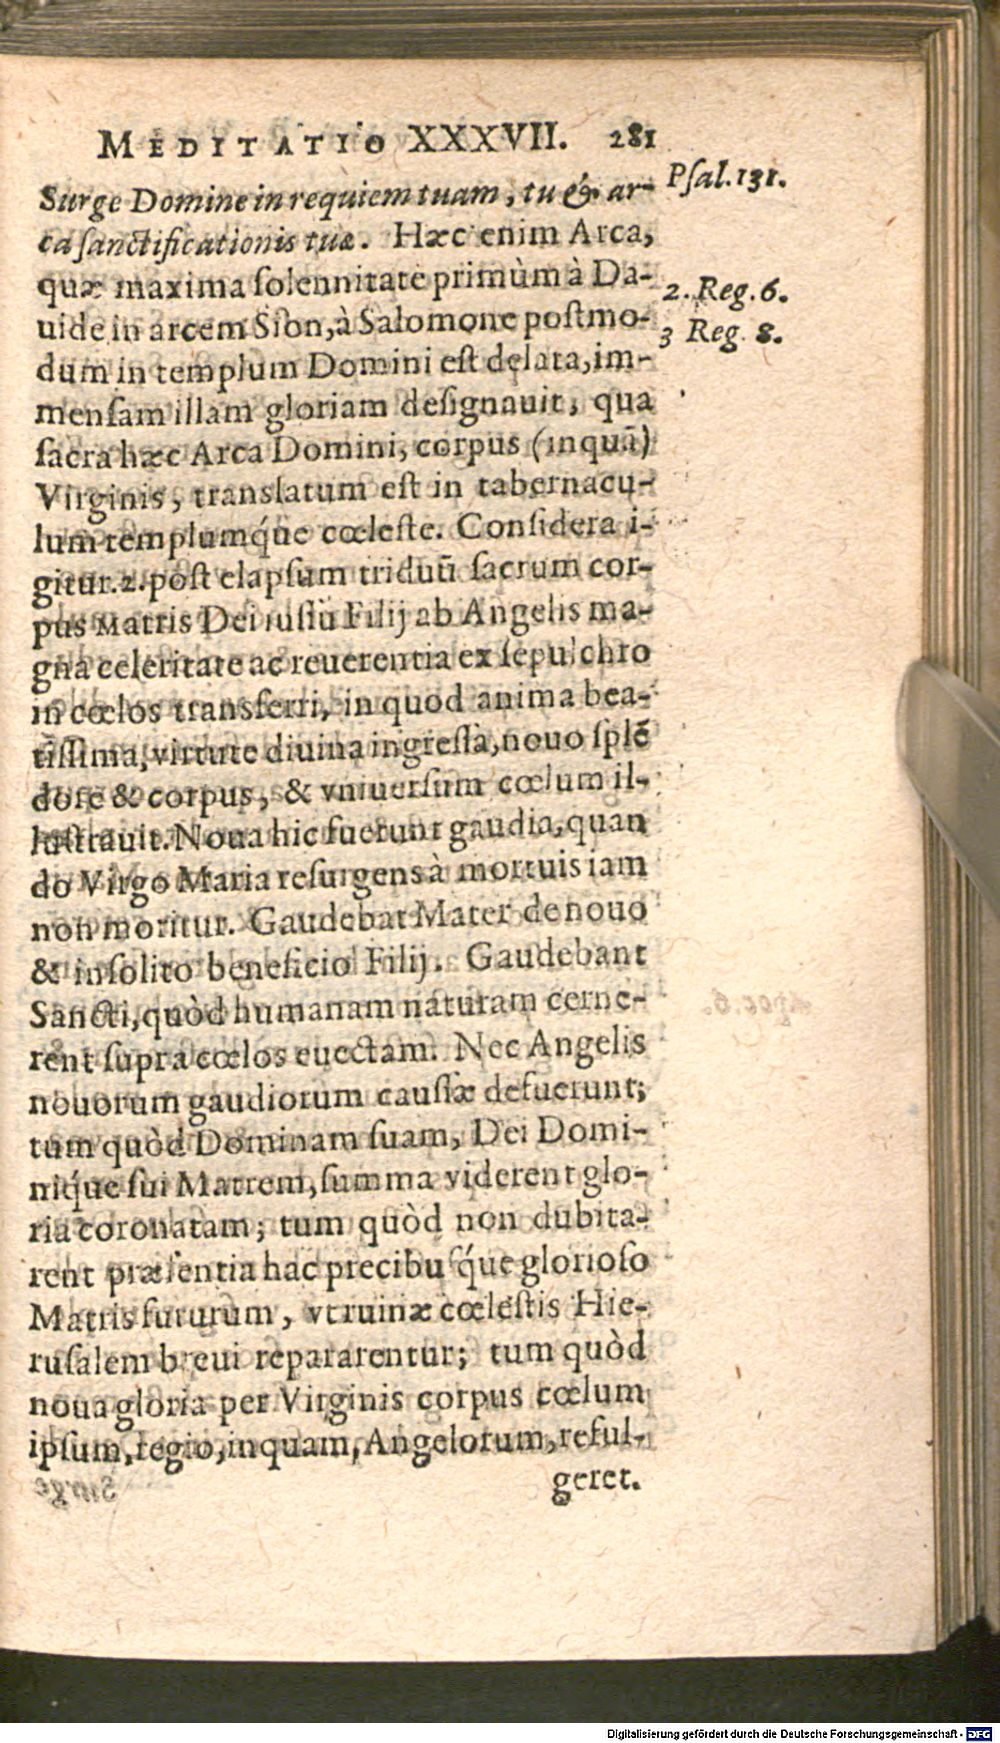 MEDITATIO XXXVII. 281
Surge Domine in requiem tuam, tu & ar- Psal. 131.
ca sanctificationis tuæ. Hæc enim Arca,
quæ maxima solennitate primùm à Da- 2. Reg. 6.
uide in arcem Sion, à Salomone postmo- 3 Reg. 8.
dum in templum Domini est delata, im-
mensam illam gloriam designauit, qua
sacra hæc Arca Domini, corpus (inquā)
Virginis, translatum est in tabernacu-
lum templumq́ue cœleste. Considera i-
gitur. 2. post elapsum triduū sacrum cor-
pus Matris Dei iussu Filij ab Angelis ma-
gna celeritate ac reuerentia ex sepulchro
in cœlos transferri, in quod anima bea-
tissima, virtute diuina ingressa, nouo splē
dore & corpus, & vniuersum cœlum il-
lustrauit. Noua hic fuerunt gaudia, quan
do Virgo Maria resurgens à mortuis iam
non moritur. Gaudebat Mater de nouo
& insolito beneficio Filij. Gaudebant
Sancti, quòd humanam naturam cerne-
rent supra cœlos euectam. Nec Angelis
nouorum gaudiorum caussæ defuerunt;
tum quòd Dominam suam, Dei Domi-
niq́ue sui Matrem, summa viderent glo-
ria coronatam; tum quòd non dubita-
rent præsentia hac precibusq́ue glorioso
Matris futurum, vt ruinæ cœlestis Hie-
rusalem breui repararentur; tum quòd
noua gloria per Virginis corpus cœlum
ipsum, regio, inquam, Angelorum, reful-
geret.
Digitalisierung gefördert durch die Deutsche Forschungsgemeinschaft - DFG